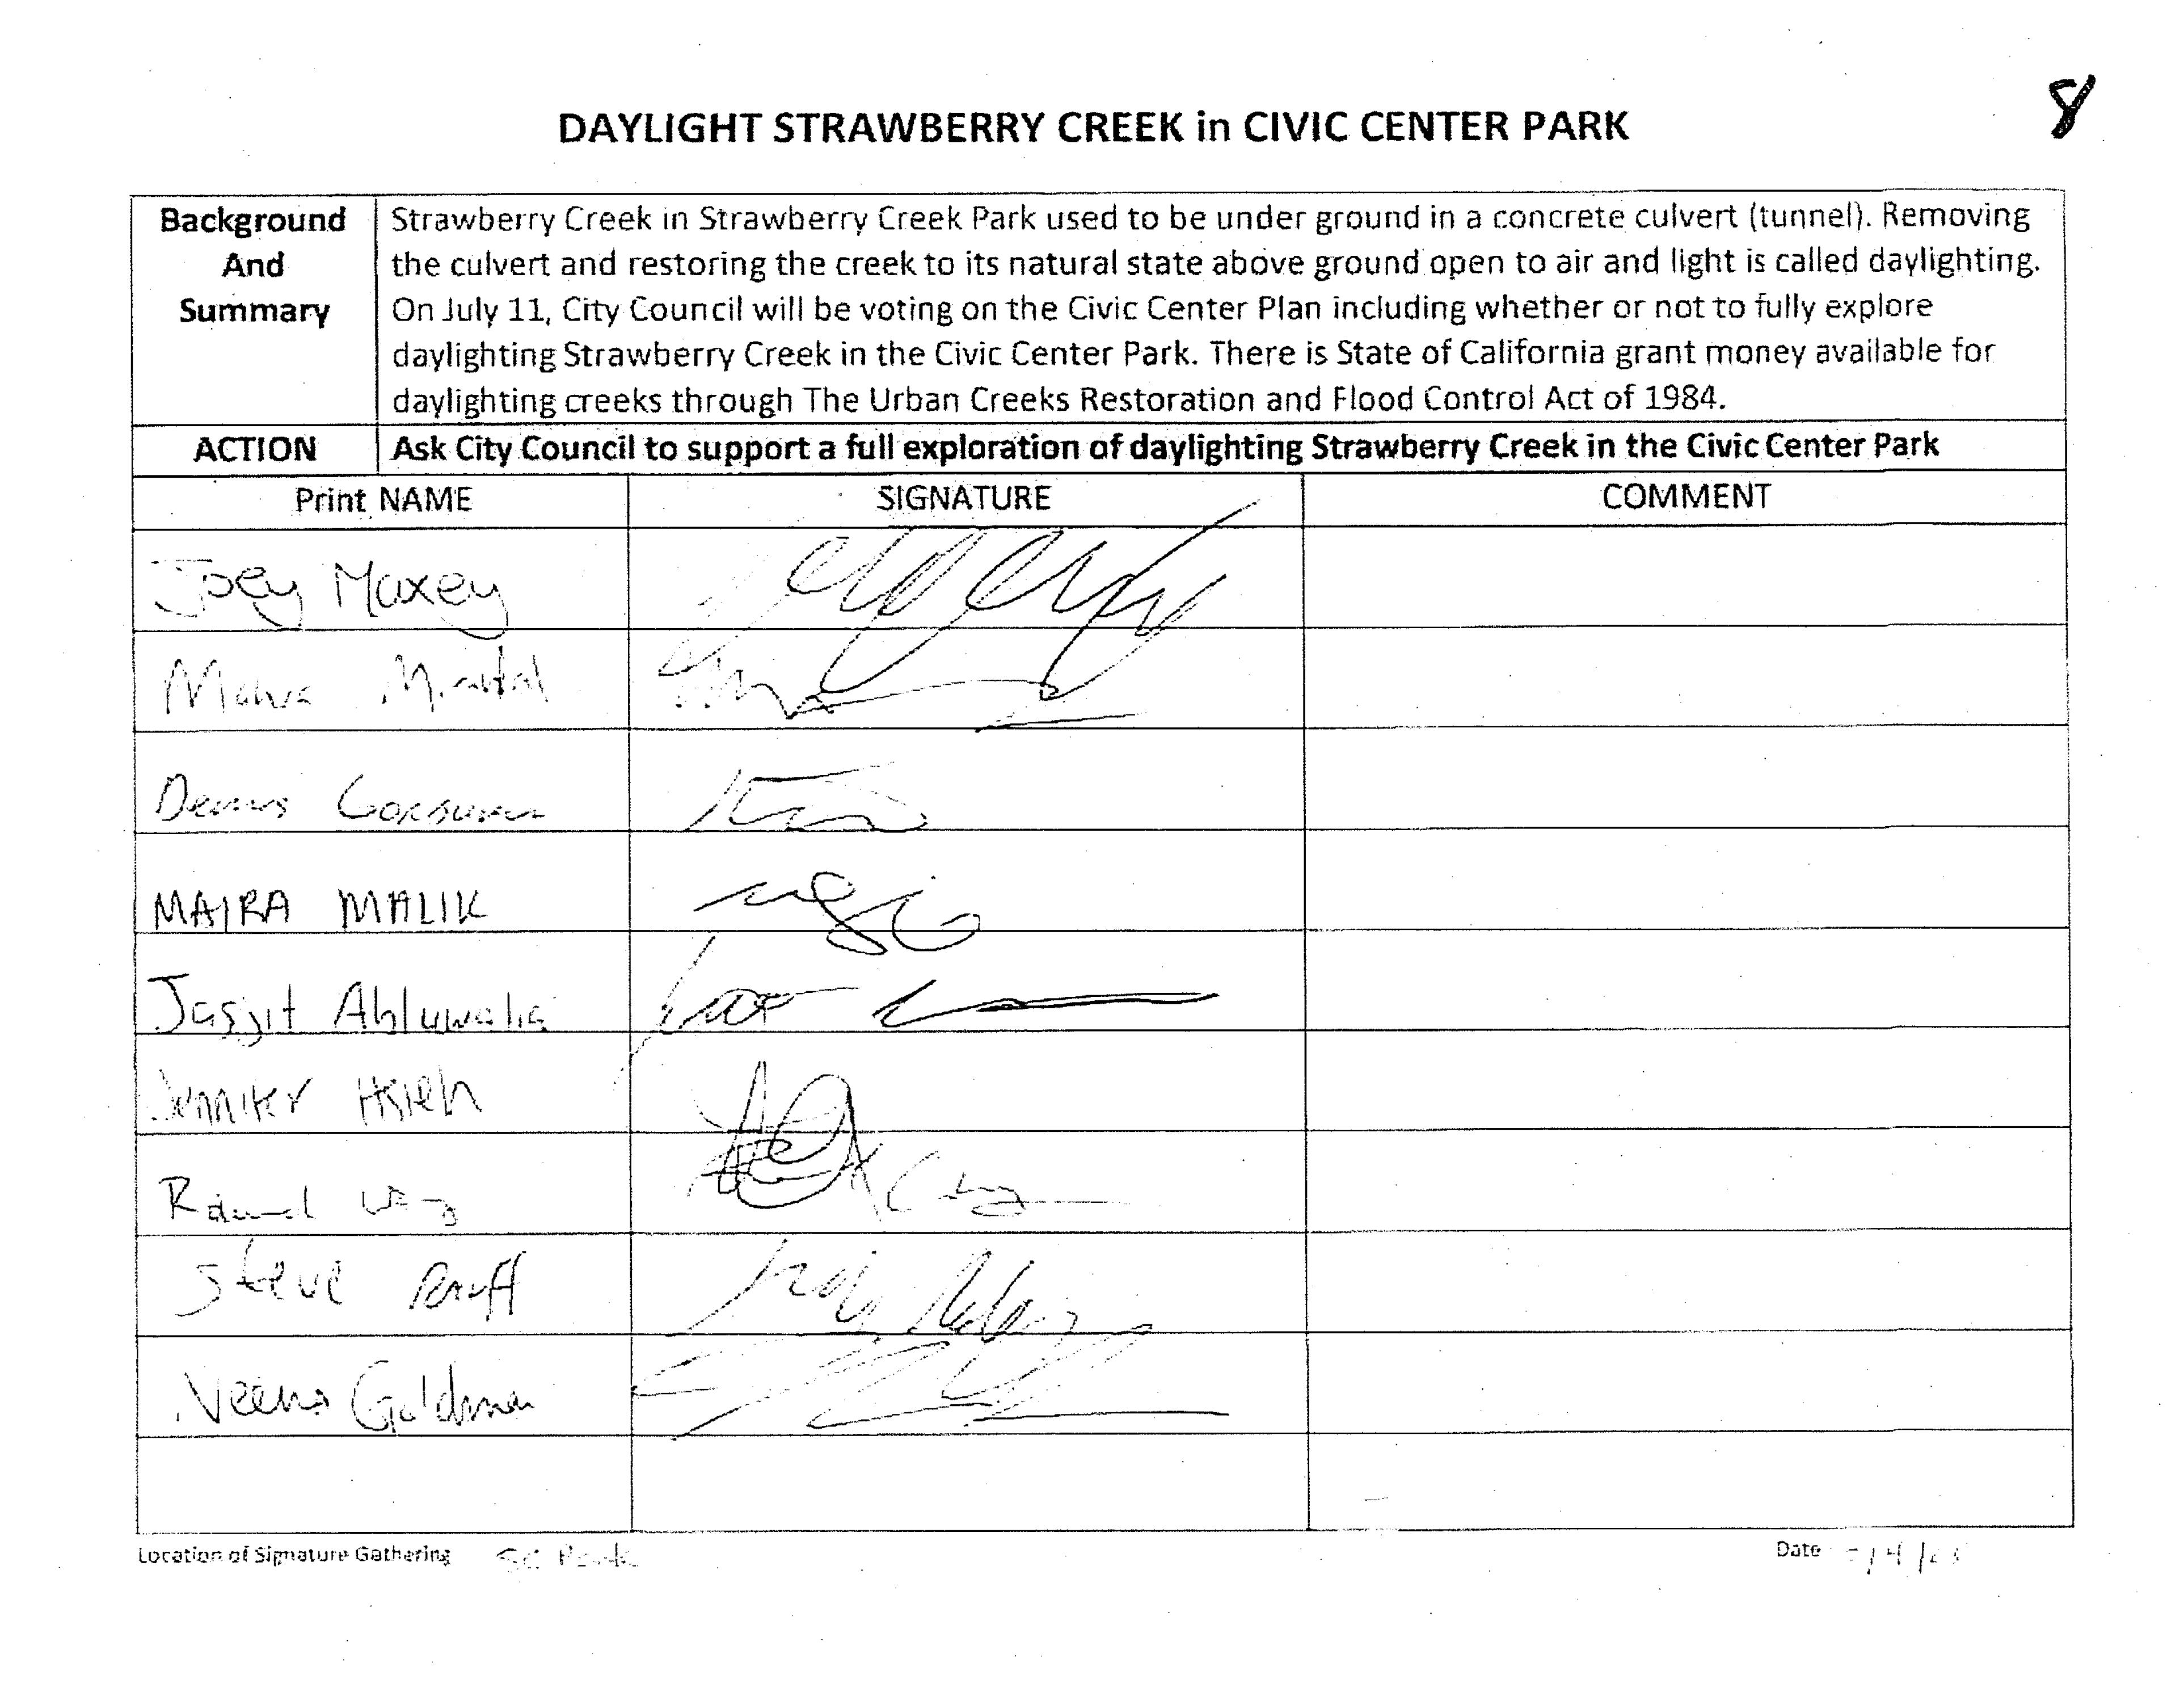 8
DAYLIGHT STRAWBERRY CREEK in CIVIC CENTER PARK
Background And Summary
Strawberry Creek in Strawberry Creek Park used to be under ground in a concrete culvert (tunnel). Removing
the culvert and restoring the creek to its natural state above ground open to air and light is called daylighting.
On July 11, City Council will be voting on the Civic Center Plan including whether or not to fully explore
daylighting Strawberry Creek in the Civic Center Park. There is State of California grant money available for
daylighting creeks through The Urban Creeks Restoration and Flood Control Act of 1984.
ACTION Ask City Council to support a full exploration of daylighting Strawberry Creek in the Civic Center Park
Print NAME SIGNATURE COMMENT
Joey Maxey
Dennis
MAIRA MALIK
Jasjit Ahluwalia
Jennifer Hsieh
Steve
Veena Goldman
Location of Signature Gathering SC Park Date